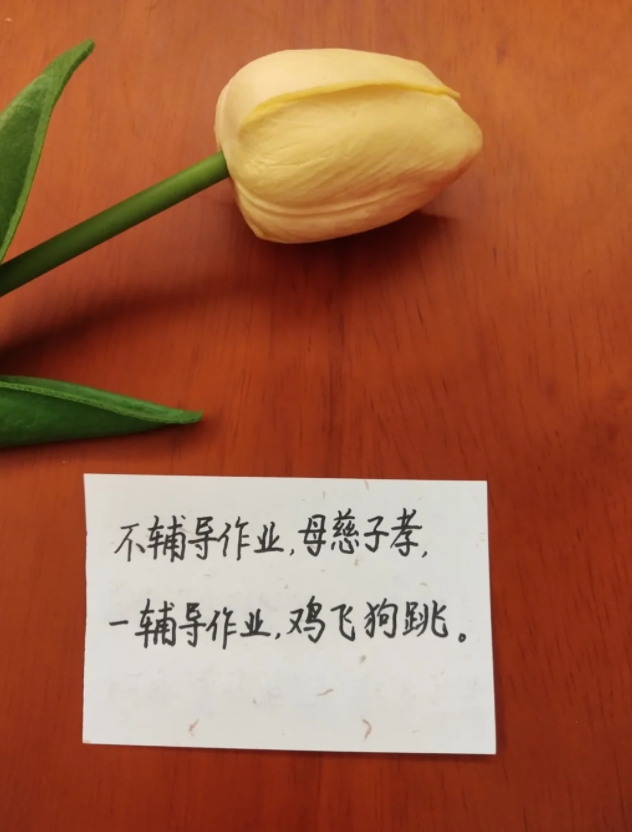 不辅导作业,母慈子孝,
一辅导作业,鸡飞狗跳。